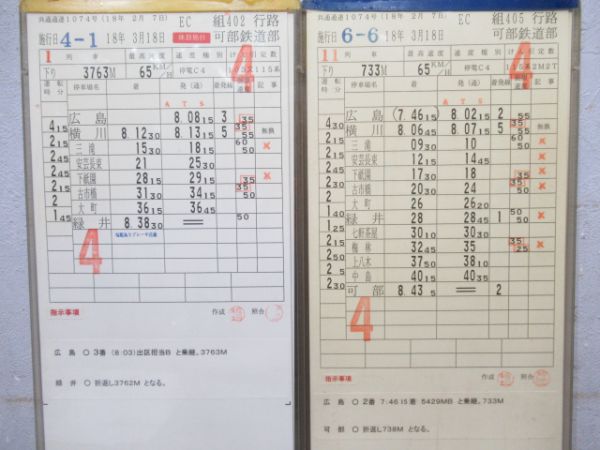 共通通達1074号(18年 2月 7日) EC 組402 行路
施行日 4-1 18年 3月18日 可部鉄道部
1 列車 最高速度 速度種別 けん引定数
下り 3763M 65 KM/H 停電C4 115系
運転時分 停車場名 着 発(通) 着発線 記事
ATS
広島 8.08 15 3 35
4 15 横川 8.12 30 8.13 15 5 55 無熱
2 15 三滝 15 30 18 15 50 ×
安芸長束 21 25 30
下祇園 28 15 29 15 ×
古市橋 31 30 34 15
2 大町 36 15 36 45
1 45 緑井 8.38 30 ═ 50
4
指示事項 作成 照合
広島 ○ 3番 (8:03)出区担当B と乗継。3763M
緑井 ○ 折返し3762M となる。
共通通達1074号(18年 2月 7日) EC 組405 行路
施行日 6-6 18年 3月18日 可部鉄道部
11 列車 最高速度 速度種別 けん引定数
下り 733M 65 KM/H 停電C4 115系2M2T
運転時分 停車場名 着 発(通) 着発線 記事
ATS
広島 (7.46 15) 8.02 15 2 55
横川 8.06 45 8.07 15 5 55 無熱
三滝 09 30 10 ×
安芸長束 12 15 14 45
下祇園 17 30 18 ×
古市橋 20 30 24
大町 26 26 20
緑井 28 28 45 1 50 ×
七軒茶屋 30 10 30 30
梅林 32 45 35 25 ×
上八木 37 50 38 10
中島 40 15 40 35
可部 8.43 5 ═ 2
4
指示事項 作成 照合
広島 ○ 2番 7:46 15着 5429MB と乗継。733M
可部 ○ 折返し738M となる。